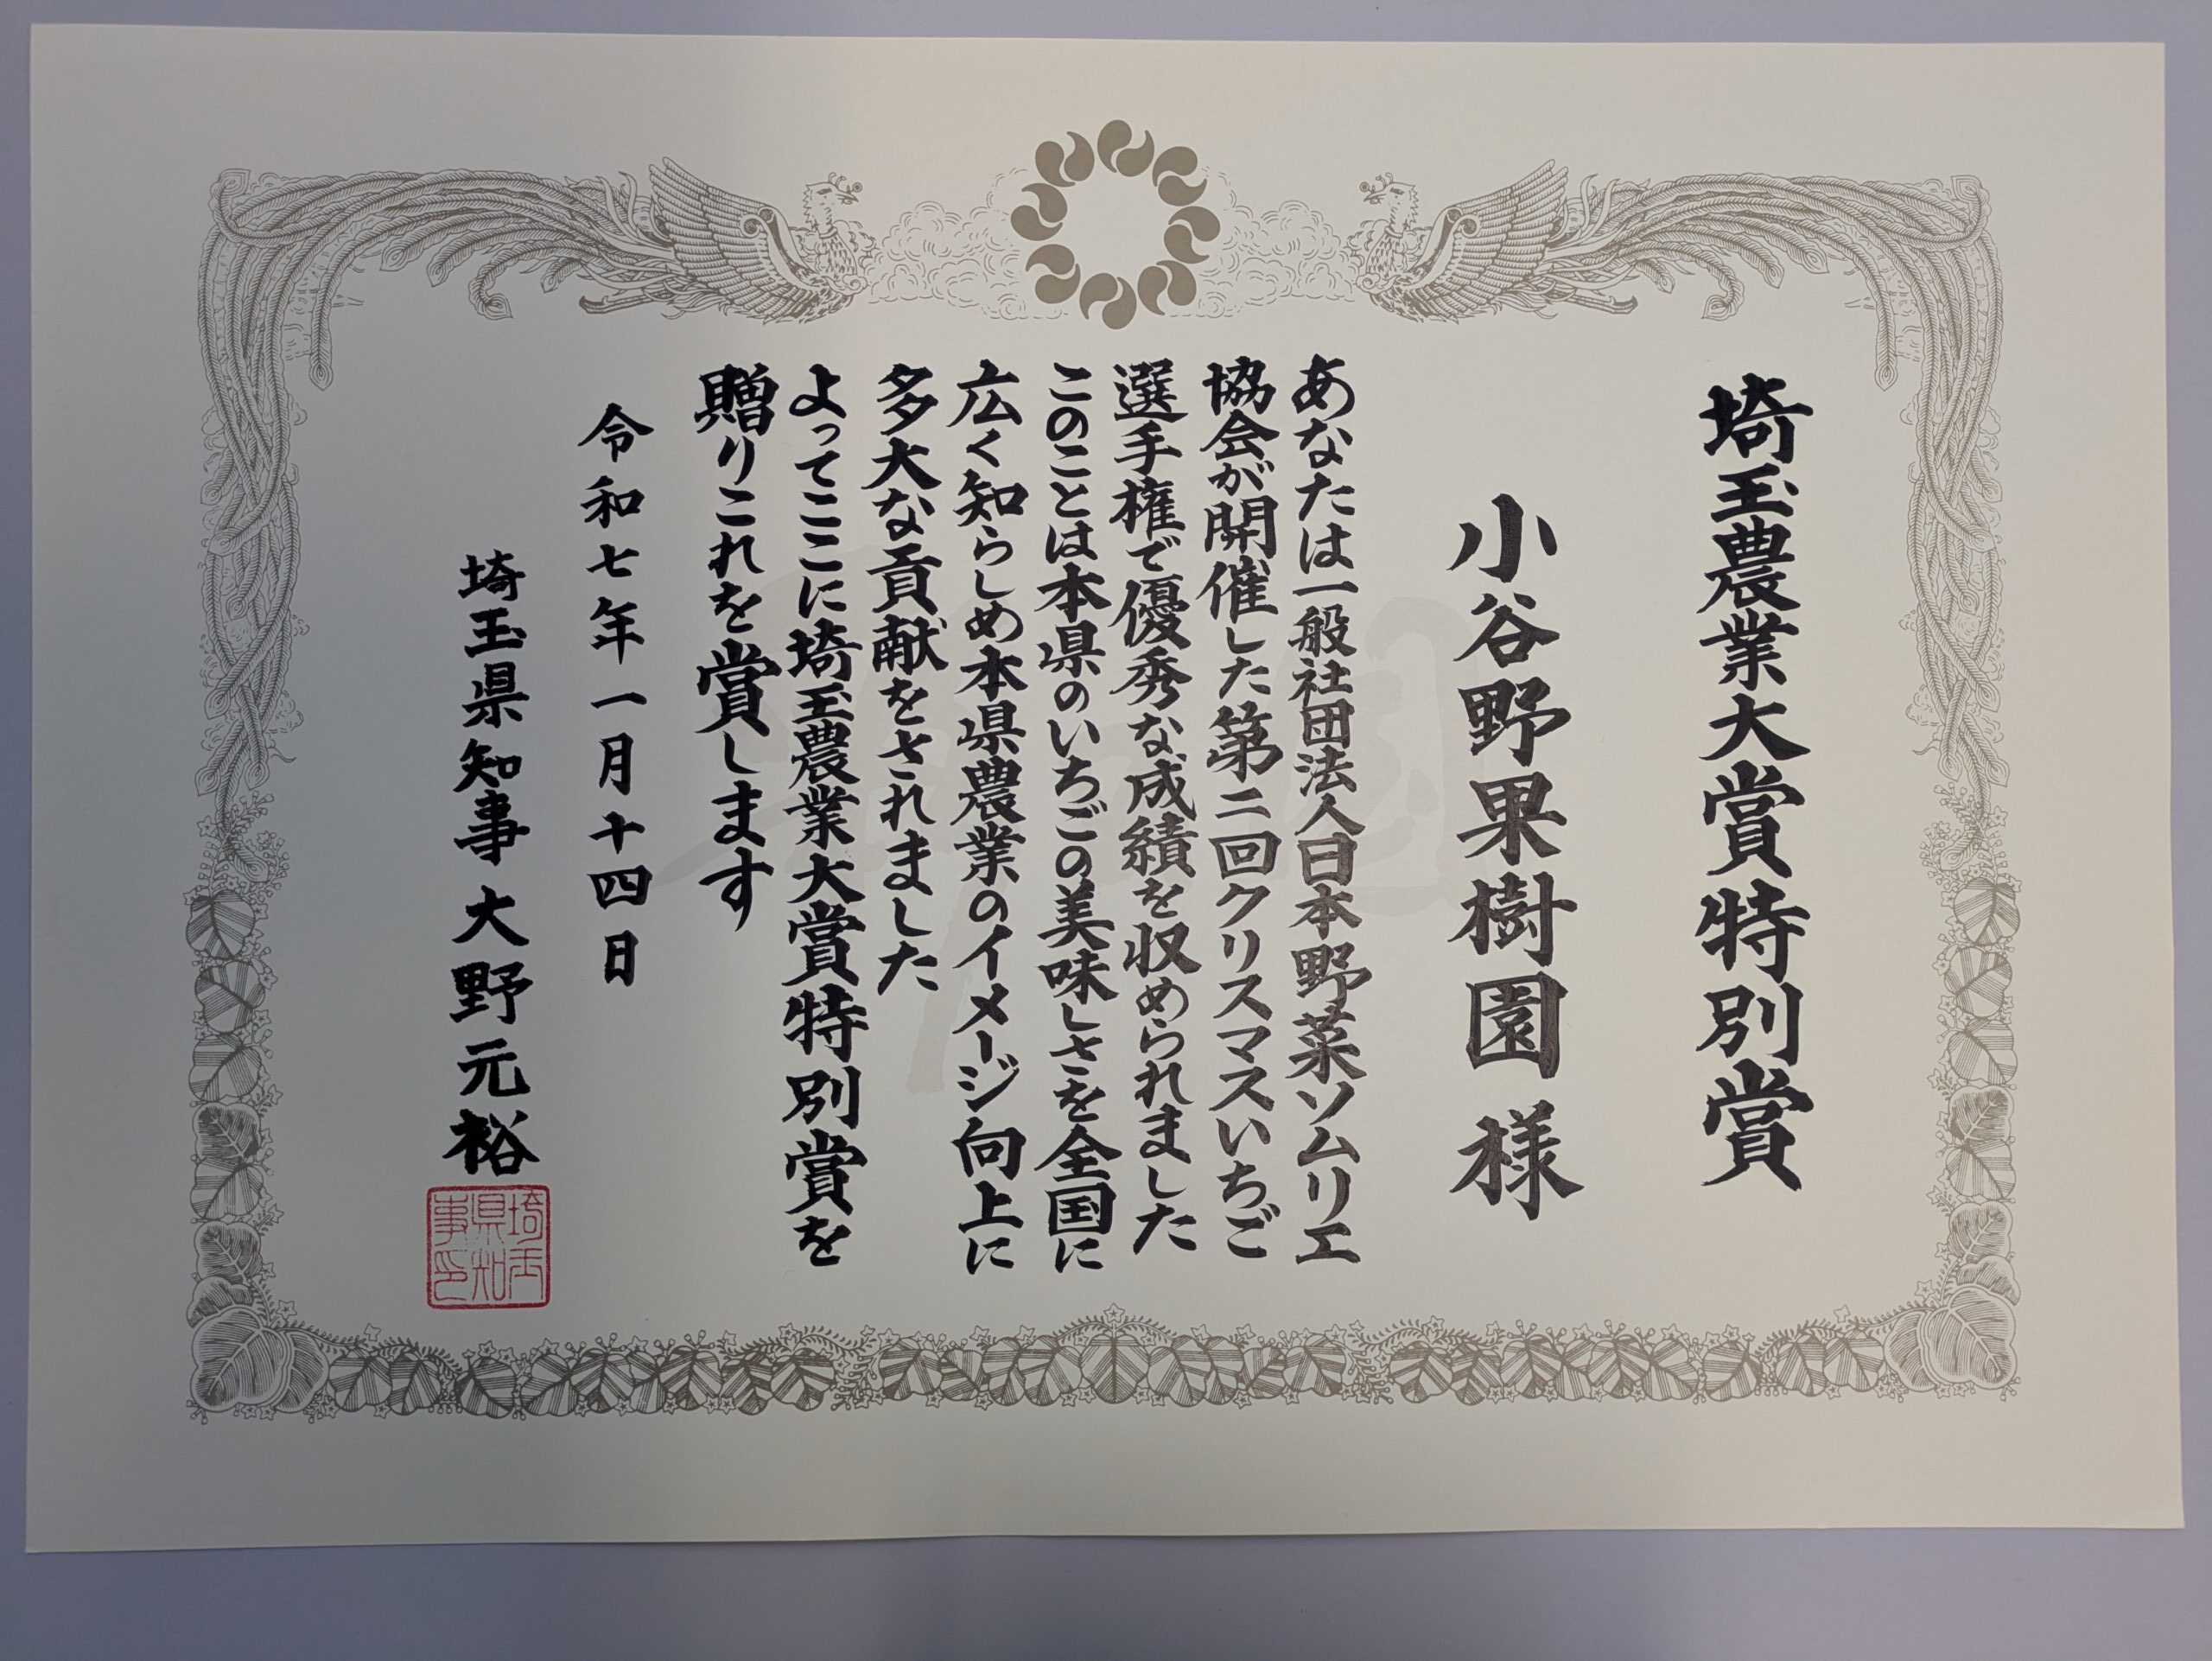 埼玉農業大賞特別賞
小谷野果樹園 様
あなたは一般社団法人日本野菜ソムリエ
協会が開催した第二回クリスマスいちご
選手権で優秀な成績を収められました
このことは本県のいちごの美味しさを全国に
広く知らしめ本県農業のイメージ向上に
多大な貢献をされました
よってここに埼玉農業大賞特別賞を
贈りこれを賞します
令和七年一月十四日
埼玉県知事 大野元裕
埼玉
県知
事印